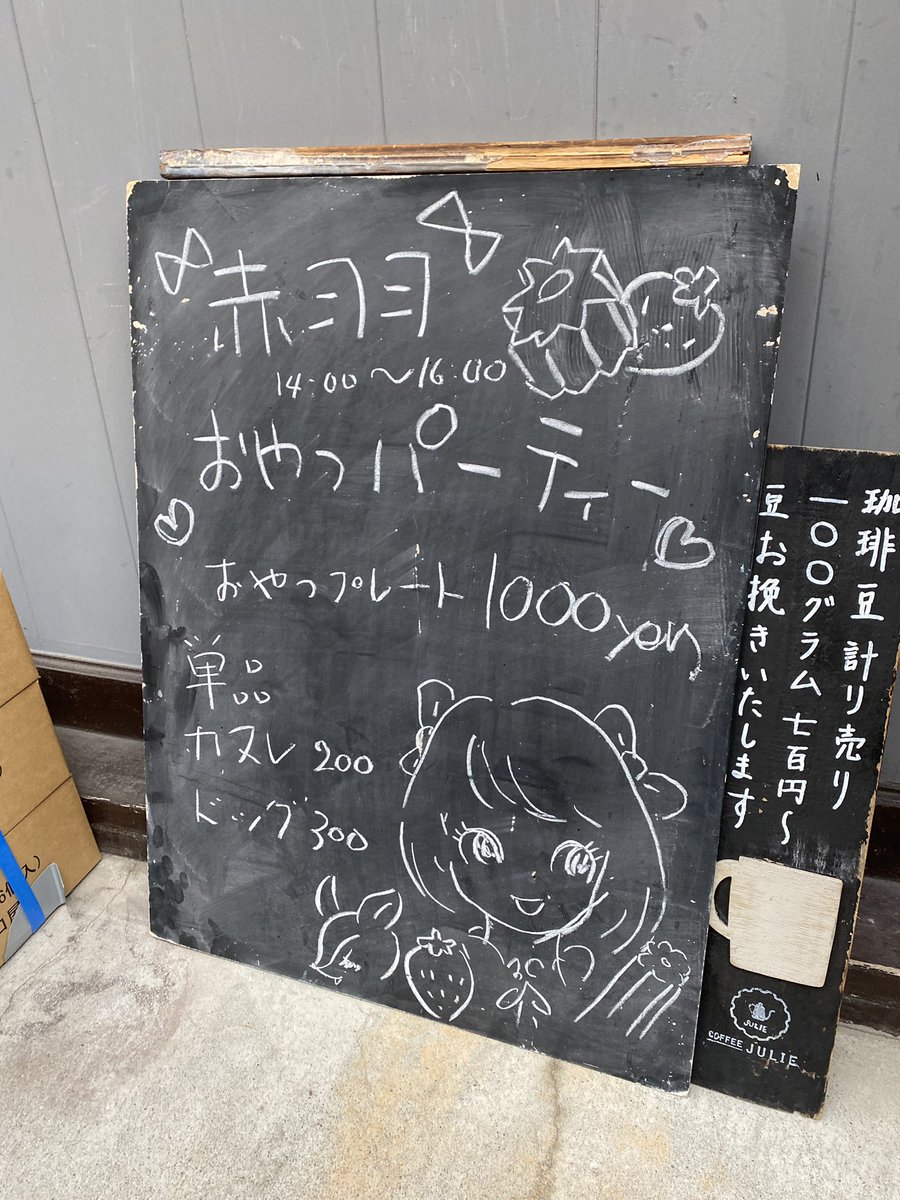 赤羽
14:00〜16:00
おやつパーティー
おやつプレート 1000yen
単品
カヌレ 200
ドッグ 300
珈琲豆計り売り
一〇〇グラム七百円〜
豆お挽きいたします
JULIE
COFFEE JULIE